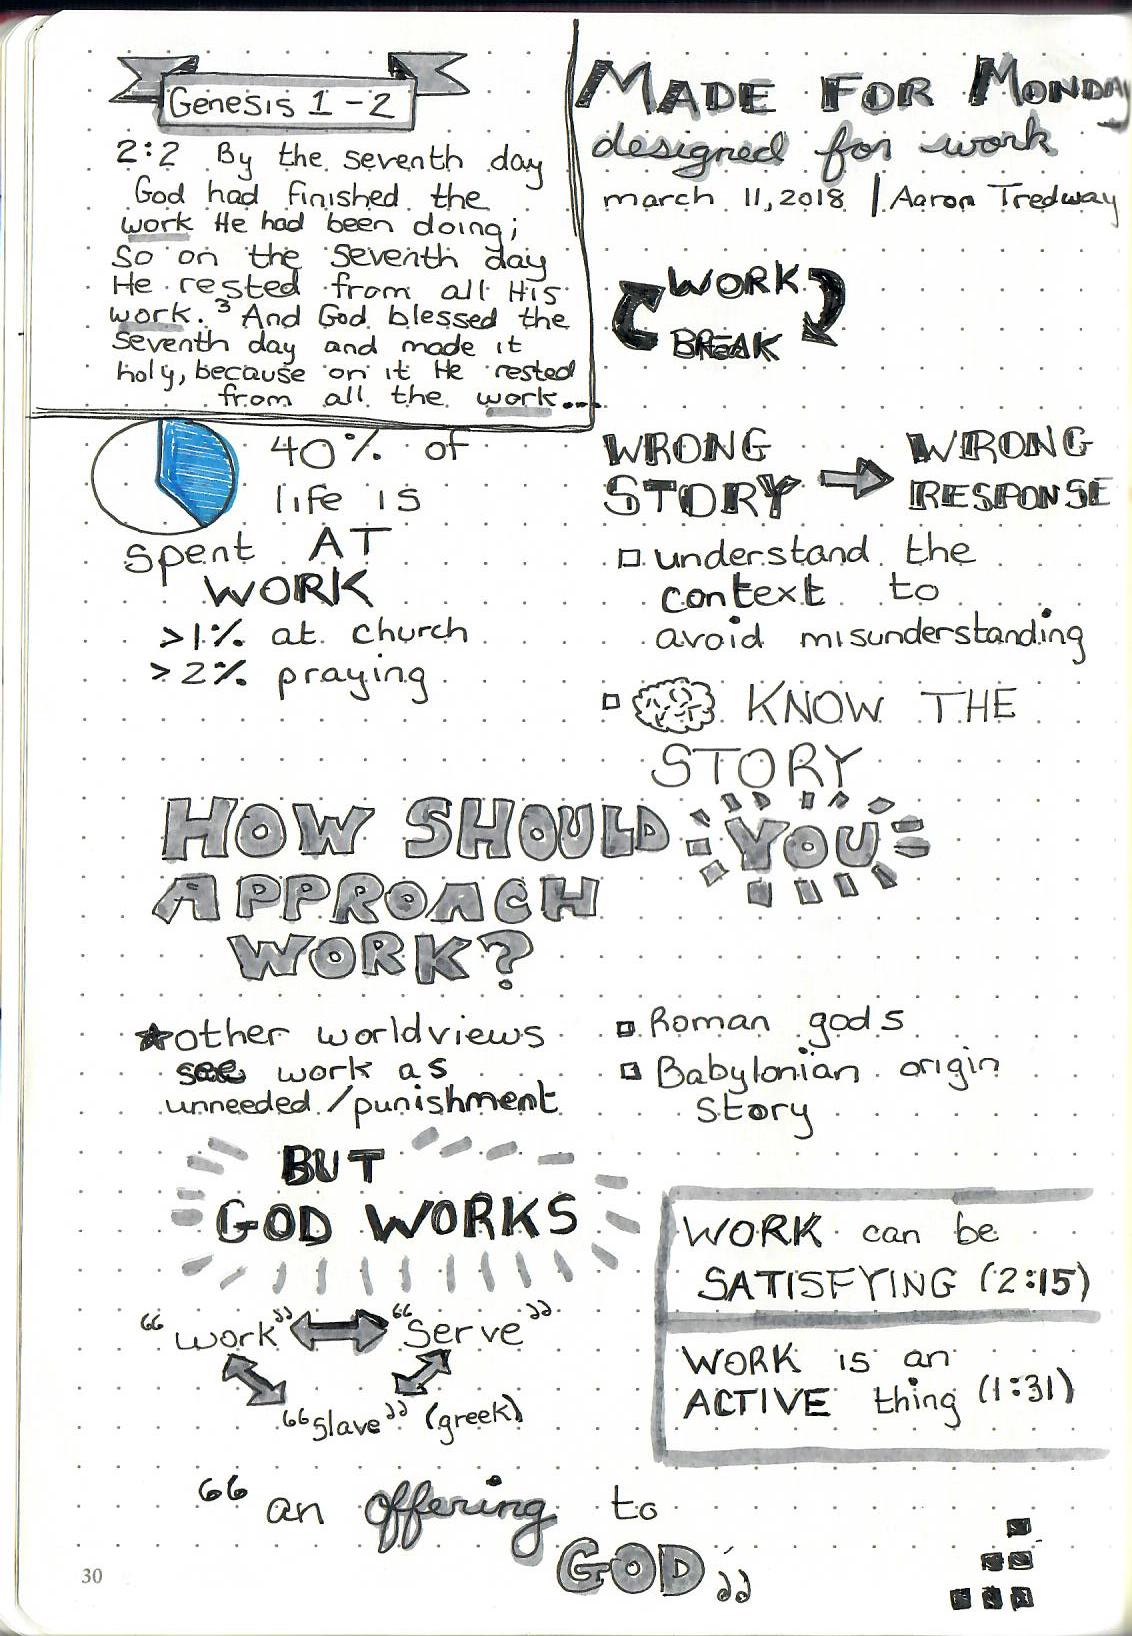 Genesis 1-2
2:2 By the seventh day
God had finished the
work He had been doing;
So on the seventh day
He rested from all His
work. ³ And God blessed the
seventh day and made it
holy, because on it He rested
from all the work...
MADE FOR MONDAY
designed for work
march 11, 2018 | Aaron Tredway
WORK
BREAK
40% of
life is
spent AT
WORK
>1% at church
>2% praying
WRONG
STORY
WRONG
RESPONSE
understand the
context to
avoid misunderstanding
KNOW THE
STORY
HOW SHOULD YOU
APPROACH
WORK?
other worldviews
see work as
unneeded/punishment
Roman gods
Babylonian origin
story
BUT
GOD WORKS
"work" "serve"
"slave" (greek)
WORK can be
SATISFYING (2:15)
WORK is an
ACTIVE thing (1:31)
"an offering to
GOD"
30